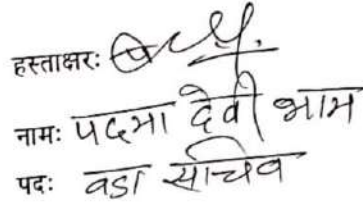 हस्ताक्षर:
नामः पदमा देवी भाम
पदः वडा सचिव